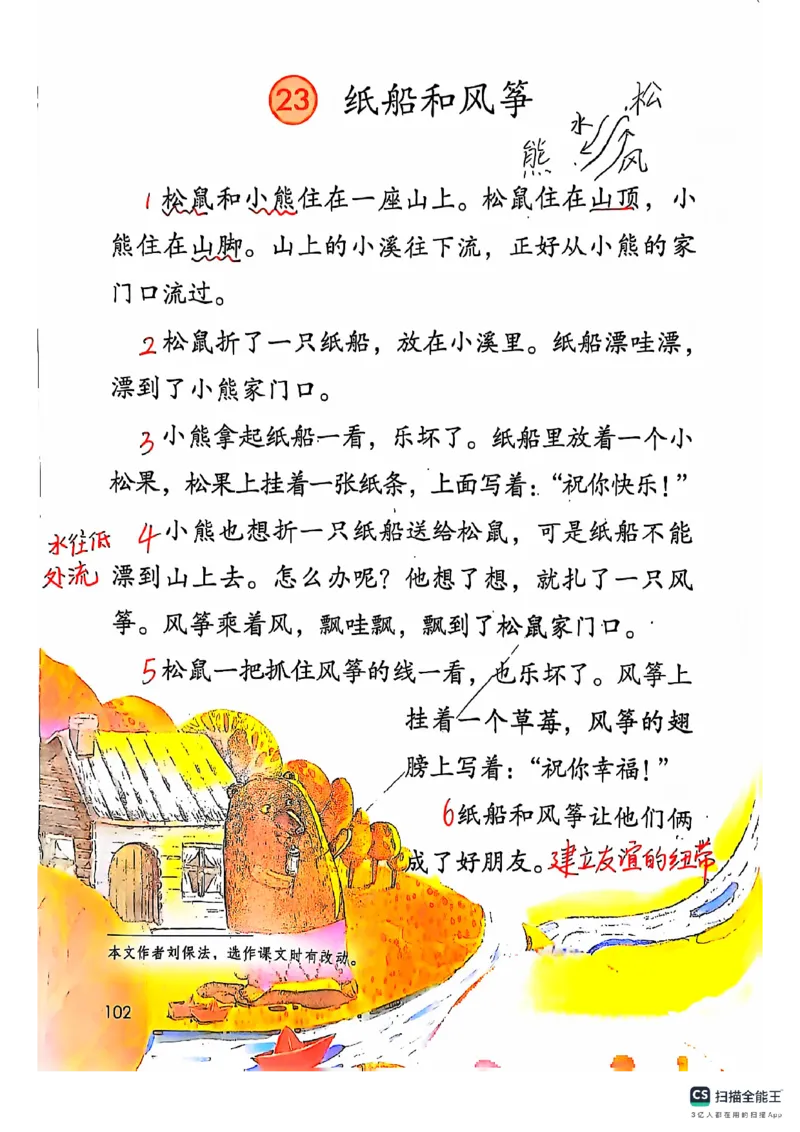 23 纸船和风筝
松
水
熊
风
1松鼠和小熊住在一座山上。松鼠住在山顶，小
熊住在山脚。山上的小溪往下流，正好从小熊的家
门口流过。
2松鼠折了一只纸船，放在小溪里。纸船漂哇漂，
漂到了小熊家门口。
3小熊拿起纸船一看，乐坏了。纸船里放着一个小
松果，松果上挂着一张纸条，上面写着：“祝你快乐！”
4小熊也想折一只纸船送给松鼠，可是纸船不能
水往低
处流
漂到山上去。怎么办呢？他想了想，就扎了一只风
筝。风筝乘着风，飘哇飘，飘到了松鼠家门口。
5松鼠一把抓住风筝的线一看，也乐坏了。风筝上
挂着一个草莓，风筝的翅
膀上写着：“祝你幸福！”
6纸船和风筝让他们俩
成了好朋友。建立友谊的纽带
本文作者刘保法，选作课文时有改动。
102
CS 扫描全能王
3亿人都在用的扫描App